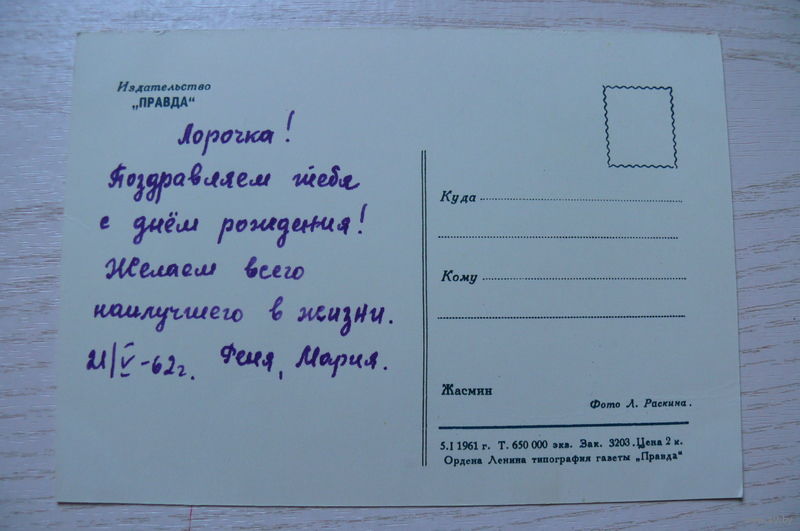 Издательство
„ПРАВДА“
Лорочка!
Поздравляем тебя
с днём рождения!
Желаем всего
наилучшего в жизни.
21/V-62г. Феня, Мария.
Куда
Кому
Жасмин
Фото Л. Раскина.
5.I 1961 г. Т. 650 000 экз. Зак. 3203. Цена 2 к.
Ордена Ленина типография газеты „Правда“